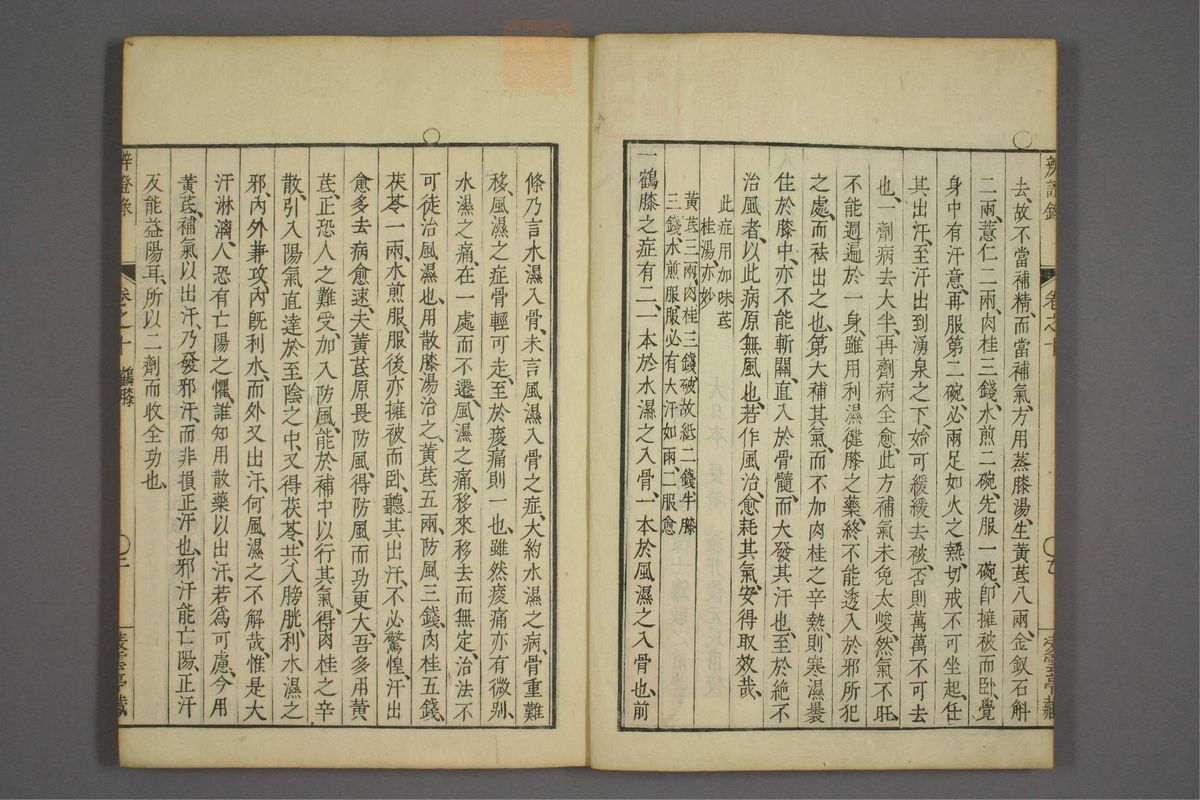 去、故不當補精、而當補氣、方用蒸膝湯、生黃芪八兩、金釵石斛
二兩、薏仁二兩、肉桂三錢、水煎二碗、先服一碗、卽擁被而臥、覺
身中有汗意、再服第二碗、必兩足如火之熱、切戒不可坐起、任
其出汗、至汗出到湧泉之下、始可緩緩去被、否則萬萬不可去
也、一劑病去大半、再劑病全愈、此方補氣未免太峻、然氣不旺、
不能週遍於一身、雖用利濕健膝之藥、終不能透入於邪所犯
之處、而祛出之也、第大補其氣、而不加肉桂之辛熱、則寒濕裊
住於膝中、亦不能斬關、直入於骨髓、而大發其汗也、至於絕不
治風者、以此病原無風也、若作風治、愈耗其氣、安得取效哉、
此症用加味芪
桂湯、亦妙
黃芪三兩、肉桂三錢、破故紙二錢、牛膝
三錢、水煎服、服必有大汗如雨、二服愈
一鶴膝之症有二、一本於水濕之入骨、一本於風濕之入骨也、前
條乃言水濕入骨、未言風濕入骨之症、大約水濕之病、骨重難
移、風濕之症骨輕可走、至於痠痛則一也、雖然痠痛亦有微別、
水濕之痛、在一處而不遷、風濕之痛、移來移去而無定、治法不
可徒治風濕也、用散膝湯治之、黃芪五兩、防風三錢、肉桂五錢、
茯苓一兩、水煎服、服後亦擁被而臥、聽其出汗、不必驚惶、汗出
愈多去病愈速、夫黃芪原畏防風、得防風而功更大、吾多用黃
芪、正恐人之難受、加入防風、能於補中以行其氣、得肉桂之辛
散、引入陽氣直達於至陰之中、又得茯苓、共入膀胱、利水濕之
邪、內外兼攻、內旣利水、而外又出汗、何風濕之不解哉、惟是大
汗淋漓、人恐有亡陽之懼、誰知用散藥以出汗、若爲可慮、今用
黃芪、補氣以出汗、乃發邪汗、而非損正汗也、邪汗能亡陽、正汗
反能益陽耳、所以二劑而收全功也、
辨證錄
卷之十
鶴膝